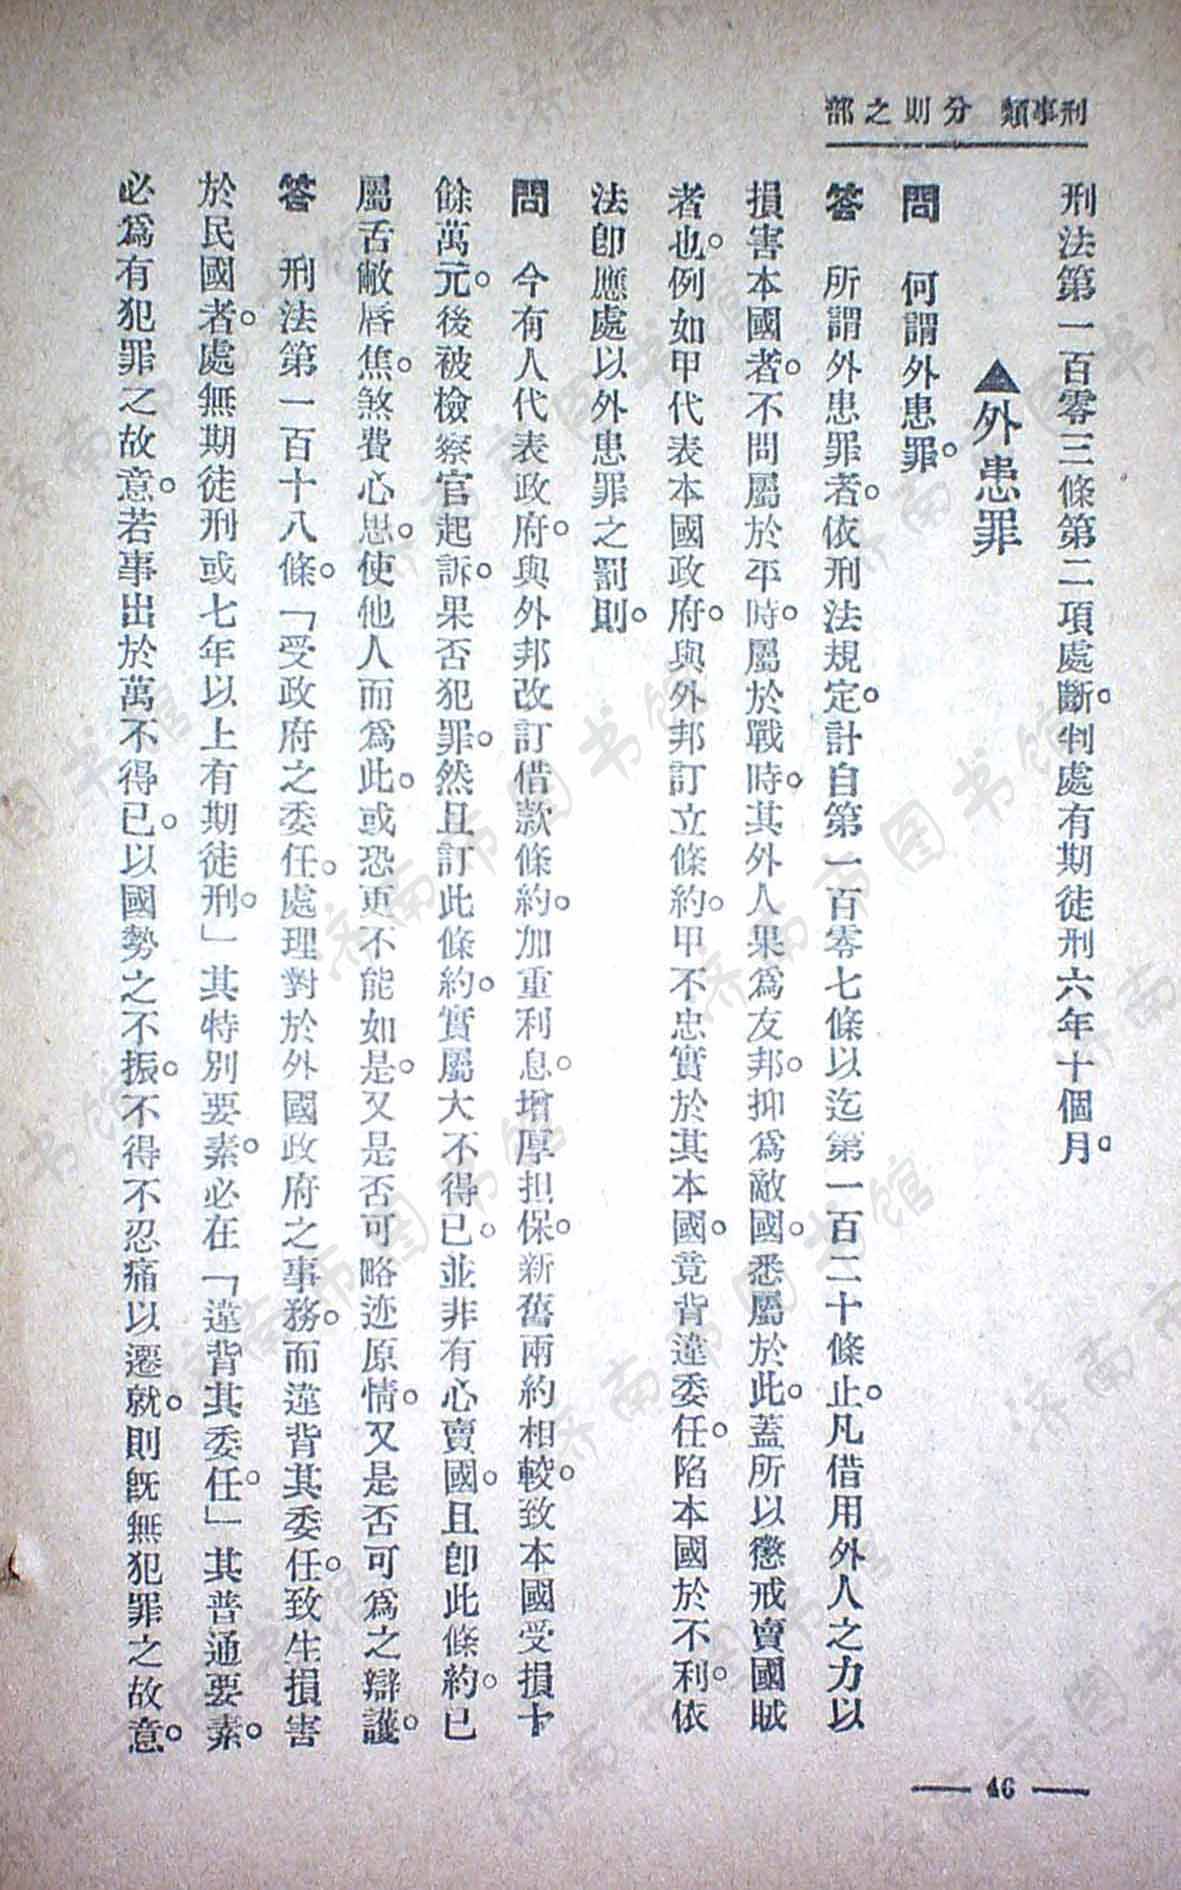 刑事類 分則之部
刑法第一百零三條第二項處斷。判處有期徒刑六年十個月。
▲外患罪
問 何謂外患罪。
答 所謂外患罪者。依刑法規定。計自第一百零七條以迄第一百二十條止。凡借用外人之力以
損害本國者。不問屬於平時。屬於戰時。其外人果爲友邦。抑爲敵國。悉屬於此。蓋所以懲戒賣國賊
者也。例如甲代表本國政府。與外邦訂立條約。甲不忠實於其本國。竟背違委任。陷本國於不利。依
法卽應處以外患罪之罰則。
問 今有人代表政府。與外邦改訂借款條約。加重利息。增厚担保。新舊兩約相較。致本國受損十
餘萬元。後被檢察官起訴。果否犯罪。然且訂此條約。實屬大不得已。並非有心賣國。且卽此條約。已
屬舌敝唇焦。煞費心思。使他人而爲此。或恐更不能如是。又是否可略迹原情。又是否可爲之辯護。
答 刑法第一百十八條。「受政府之委任。處理對於外國政府之事務。而違背其委任。致生損害
於民國者。處無期徒刑或七年以上有期徒刑。」其特別要素。必在「違背其委任。」其普通要素。
必爲有犯罪之故意。若事出於萬不得已。以國勢之不振。不得不忍痛以遷就。則旣無犯罪之故意。
— 46 —
济南市图书馆